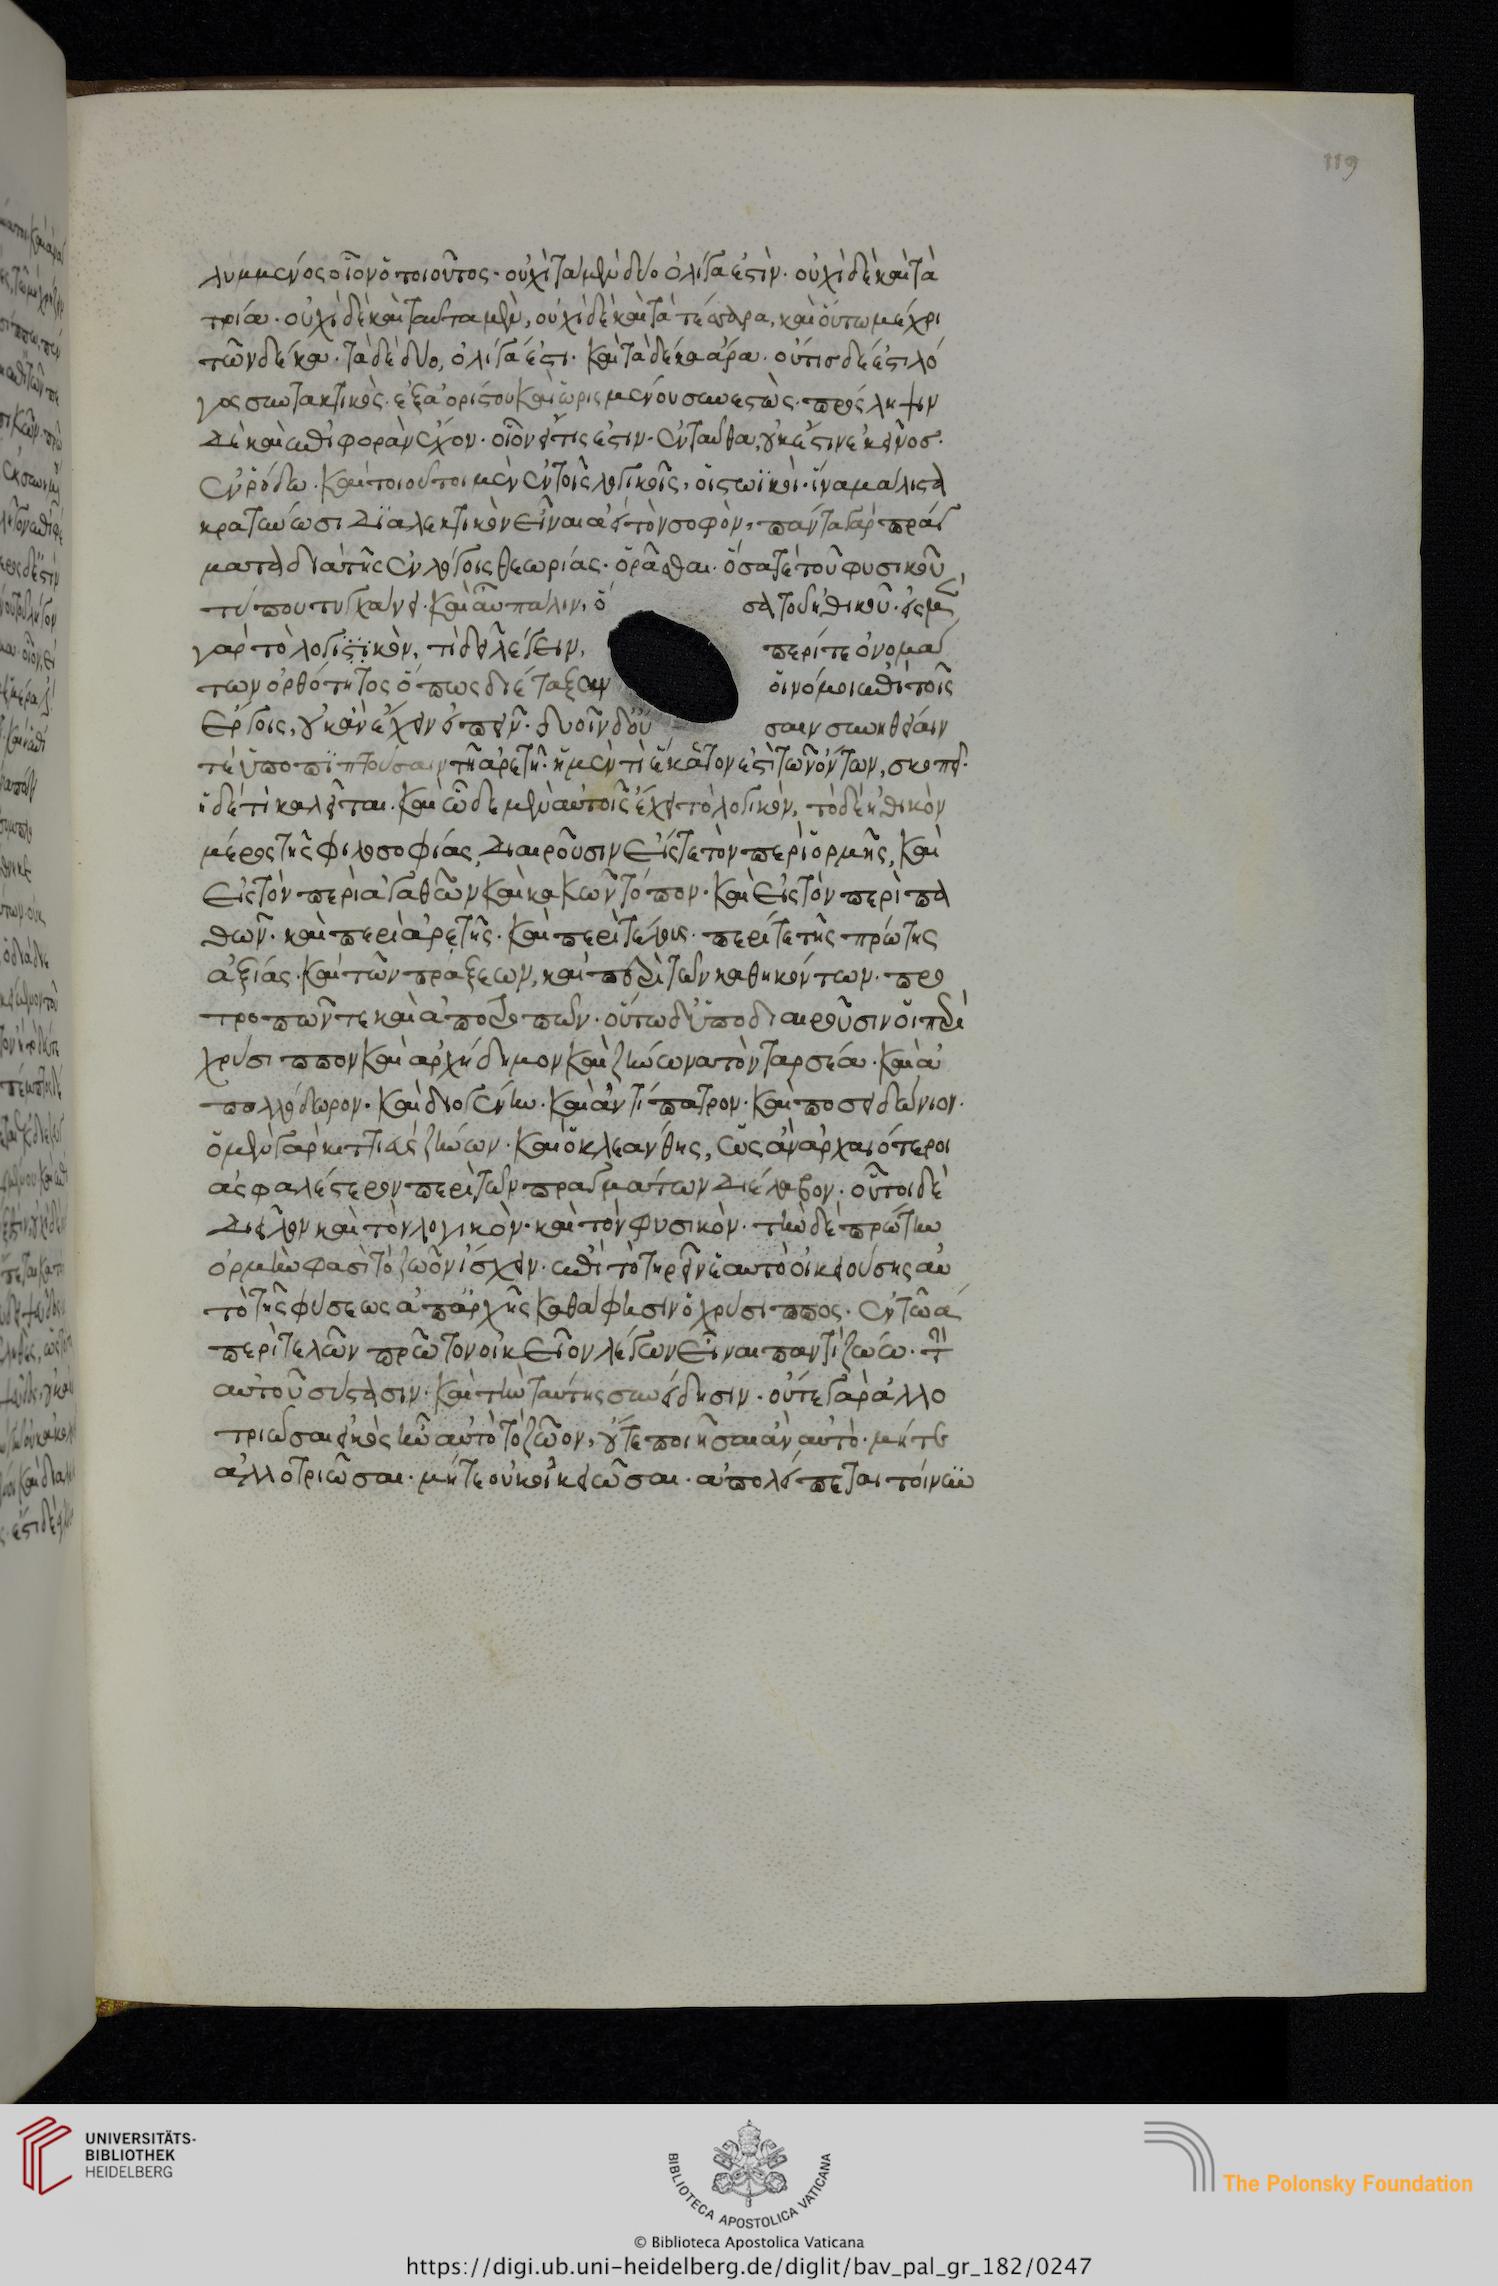 119
λυμμένος οἷον ὁ τοιοῦτος· οὐχὶ τὰ μὲν δύο ὀλίγα ἐστὶν· οὐχὶ δὲ καὶ τὰ
τρία· οὐχὶ δὲ καὶ ταῦτα μὲν, οὐχὶ δὲ καὶ τὰ τέσσαρα, καὶ οὕτω μέχρι
τῶν δέκα· τὰ δὲ δύο, ὀλίγα ἐστι· καὶ τὰ δέκα ἄρα· οὔτις δέ ἐστι λό
γος συντακτικὸς· ἐξ ἀορίστου καὶ ὡρισμένου συνεστὼς· πρόσληψιν
δὲ καὶ ἐπιφορὰν ἔχον· οἷον εἴ τις ἐστιν· ἐνταῦθα, οὐκ ἔστιν ἐκεῖνος·
ἐν ῥόδω· καὶ τοιοῦτοι μὲν ἐν τοῖς λογικοῖς, οἱ στωϊκοὶ· ἵνα μάλιστα
κρατύνωσι διαλεκτικὸν εἶναι ἀεὶ τὸν σοφὸν, πάντα γὰρ πράγ
ματα διὰ τῆς ἐν λόγοις θεωρίας· ὁρᾶσθαι· ὅσα τε τοῦ φυσικοῦ
τύπου τυγχάνει· καὶ αὖ πάλιν, ὅ σα τοῦ ἠθικοῦ· εἰς μὲν
γὰρ τὸ λογιστικὸν, τί δεῖ λέγειν, περί τε ὀνομάτ
των ὀρθότητος ὅπως διέταξαν οἱ νόμοι ἐπὶ τοῖς
ἔργοις, οὐκ ἂν ἔχειν εἰπεῖν· δυοῖν δ' οὐ σαιν συνηθείαιν
τε ὑποπιπτούσαιν τῇ ἀρετῇ· ἡ μὲν τὶ ἕκαστον ἐστὶ τῶν ὄντων, σκοπεῖ·
ἡ δέ τὶ καλεῖται· καὶ ὧδε μὲν αὐτοῖς ἔχει τὸ λογικὸν, τὸ δὲ ἠθικὸν
μέρος τῆς φιλοσοφίας, διαιροῦσιν εἴς τε τὸν περὶ ὁρμῆς, καὶ
εἰς τὸν περὶ ἀγαθῶν καὶ κακῶν τόπον· καὶ εἰς τὸν περὶ πα
θῶν· καὶ περὶ ἀρετῆς· καὶ περὶ τέλους· περί τε τῆς πρώτης
ἀξίας· καὶ τῶν πράξεων, καὶ περὶ τῶν καθηκόντων· προ
τροπῶν τε καὶ ἀποτροπῶν· οὕτω δ' ὑποδιαιροῦσιν οἱ περὶ
χρύσιππον καὶ ἀρχήδημον καὶ ζήνωνα τὸν ταρσέα· καὶ ἀ
πολλόδωρον· καὶ διογένην· καὶ ἀντίπατρον· καὶ ποσειδώνιον·
ὁ μὲν γὰρ κιττιεὺς ζήνων· καὶ ὁ κλεάνθης, ὡς ἂν ἀρχαιότεροι
ἀσφαλέστερον περὶ τῶν πραγμάτων διέλαβον· οὗτοι δὲ
διεῖλον καὶ τὸν λογικὸν· καὶ τὸν φυσικὸν· τὴν δὲ πρώτην
ὁρμὴν φασὶ τὸ ζῶον ἴσχειν· ἐπὶ τὸ τηρεῖν ἑαυτὸ οἰκειούσης αὐ
τὸ τῆς φύσεως ἀπ' ἀρχῆς καθά φησιν ὁ χρύσιππος· ἐν τῶ α
περὶ τελῶν πρῶτον οἰκεῖον λέγων εἶναι παντὶ ζώω· τὴν
αὐτοῦ σύστασιν· καὶ τὴν ταύτης συνείδησιν· οὔτε γὰρ ἀλλο
τριῶσαι εἰκὸς ἦν αὐτὸ τὸ ζῶον, οὔτε ποιῆσαι ἂν αὐτὸ· μήτε
ἀλλοτριῶσαι· μήτε οὐκ οἰκειῶσαι· ἀπολείπεται τοίνυν
UNIVERSITÄTS-
BIBLIOTHEK
HEIDELBERG
BIBLIOTECA APOSTOLICA VATICANA
The Polonsky Foundation
© Biblioteca Apostolica Vaticana
https://digi.ub.uni-heidelberg.de/diglit/bav_pal_gr_182/0247